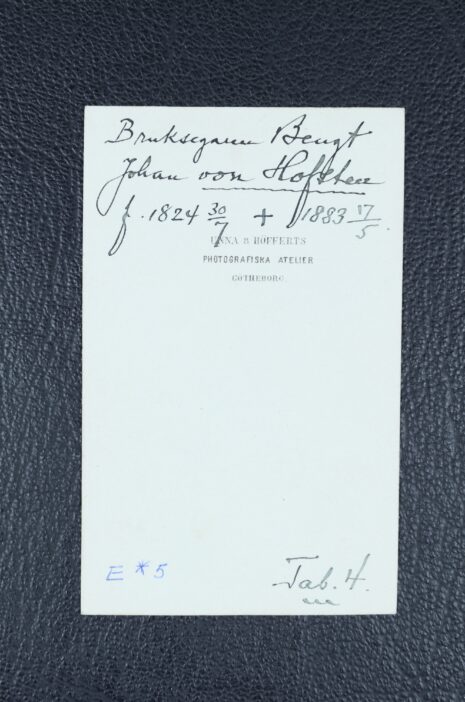 Bruksegaren Bengt
Johan von Hofsten
f. 1824 30/7 + 1883 17/5.
UNNA & HÖFFERTS
PHOTOGRAFISKA ATELIER
GÖTHEBORG
E * 5
Tab. 4.